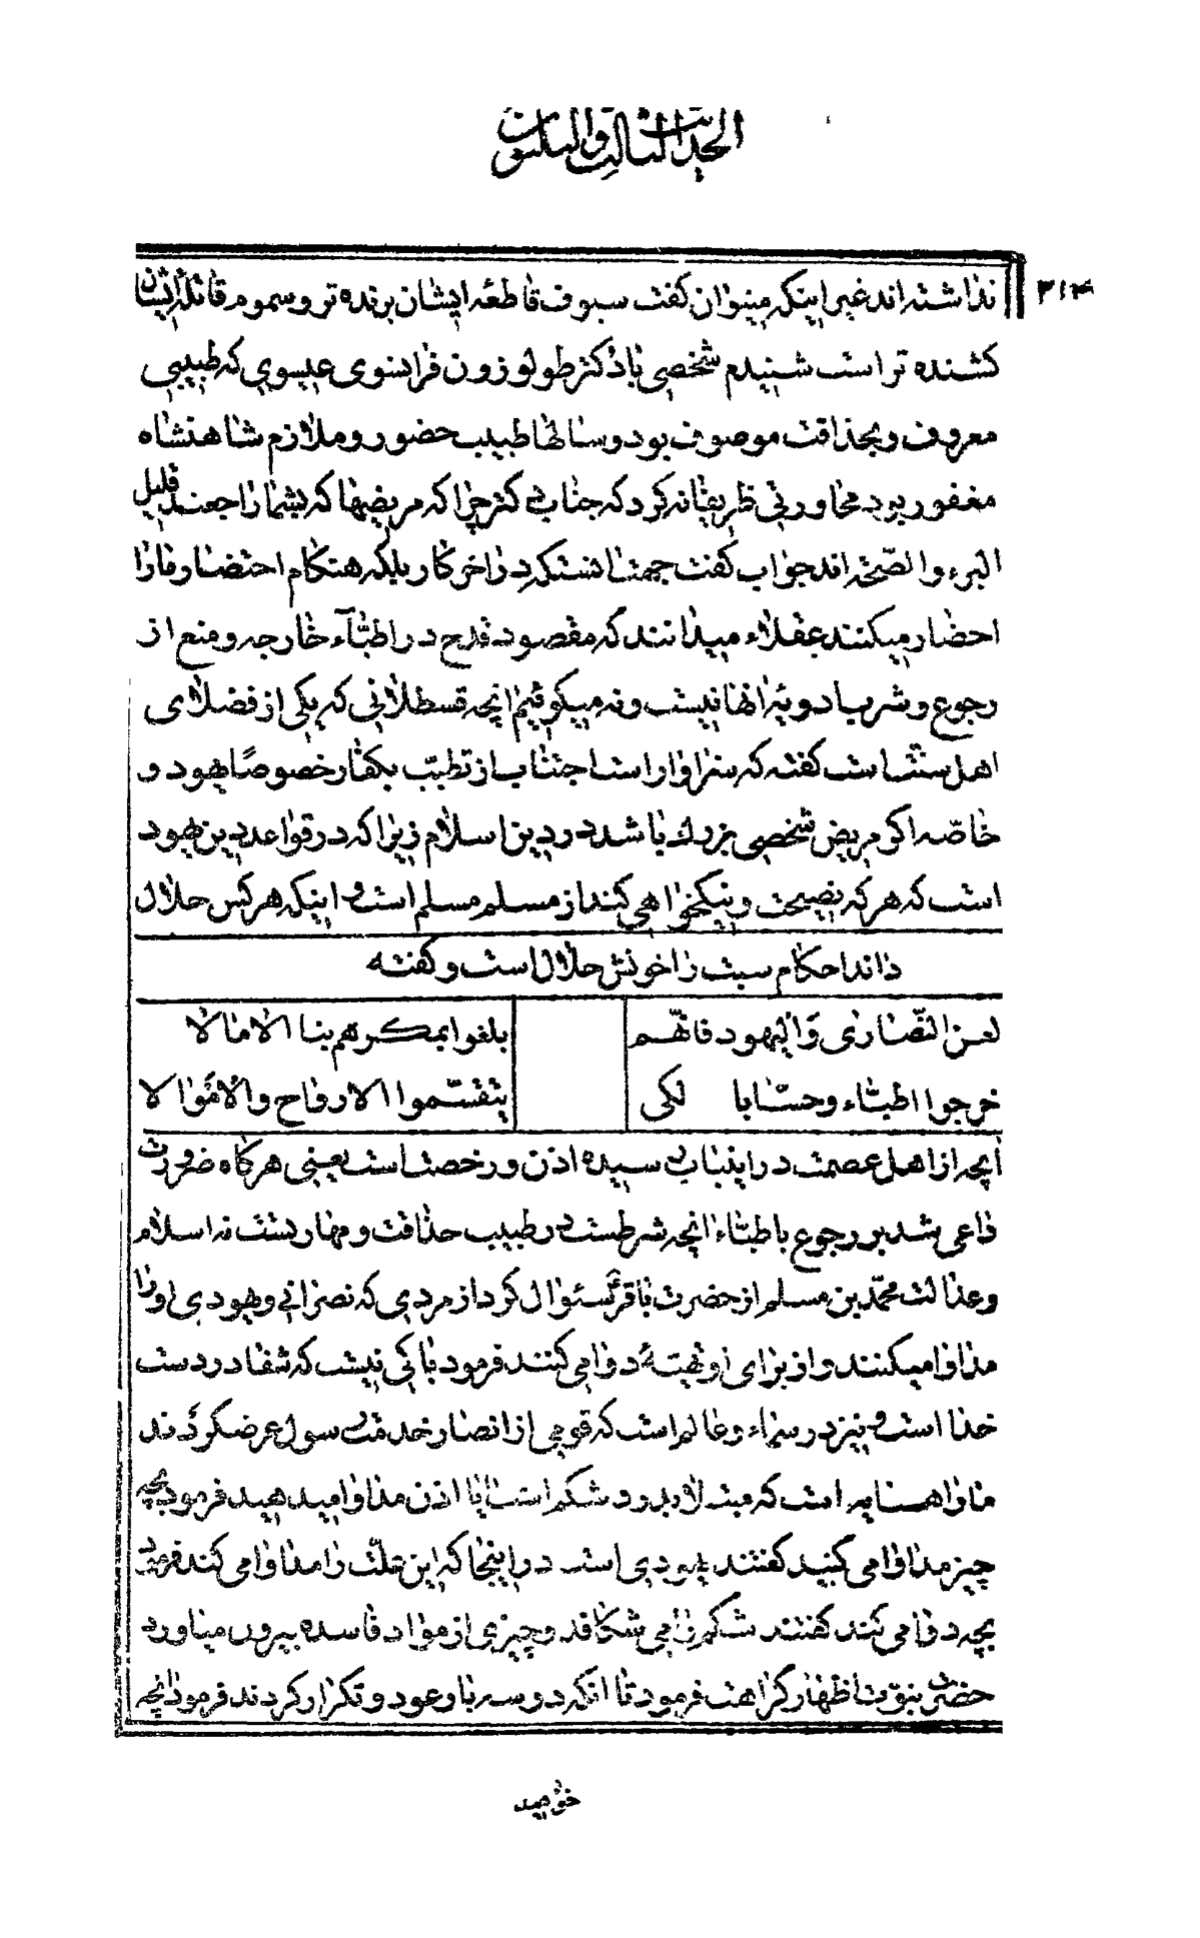 الحدیث الثالث والثلثون
۳۱۴
نداشته اند غیر اینکه میتوان گفت سیوف قاطعه ایشان برنده تر و سموم قاتله ایشان
کشنده تر است شنیدم شخصی با دکتر طولوزون فرانسوی عیسوی که طبیبی
معروف و بحذاقت موصوف بود و سالها طبیب حضور و ملازم شاهنشاه
مغفور بود محاورتی ظریفانه کرد که جناب دکتر چرا که مریضها که بشما راجعند قلیل
البرء و الصحه اند جواب گفت جهتش اینستکه در اخر کار بلکه هنگام احتضار ما را
احضار میکنند عقلاء میدانند که مقصود قدح در اطبآء خارجه و منع از
رجوع و شرب ادویهٔ انها نیست و نه میگوئیم انچه قسطلانی که یکی از فضلای
اهل سنتست گفته که سزاوار است اجتناب از تطبب بکفار خصوصًا یهود و
خاصّه اگر مریض شخصی بزرك باشد در دین اسلام زیرا که در قواعد دین یهود
است که هر که نصیحت و نیکخواهی کند از مسلم مسلم است و اینکه هر کس حلال
داند احکام سبت را خونش حلال است و گفته
لعن النّصاری وَالیهود فانّهم بلغوا بمکرهم بنا الامالا
خرجوا اطبّاء و حسّابا لکی یتقسّموا الارواح والاموالا
آنچه از اهل عصمت در اینباب رسیده اذن و رخصتست یعنی هرگاه ضرورت
داعی شد بر رجوع باطبّاء انچه شرطست در طبیب حذاقت و مهارتست نه اسلام
و عدالت محمّد بن مسلم از حضرت باقر سئوال کرد از مردی که نصرانی و یهودی او را
مداوا میکنند و از برای او تهیّهٔ دوا می کنند فرمود باکی نیست که شفا در دست
خدا است و نیز در سماء و عالم است که قومی از انصار خدمت رسول عرض کردند
ما را همسایه است که مبتلا بدرد شکم است ایا اذن مداوا میدهید فرمود بچه
چیز مداوا می کنید گفتند یهودی است در اینجا که این علّت را مداوا می کند فرمود
بچه دوا می کند گفتند شکم را می شکافد و چیزی از مواد فاسده بیرون میاورد
حضرت نبوّت اظهار کراهت فرمود تا انکه دو سه بار عود و تکرار کردند فرمود انچه
خواهید